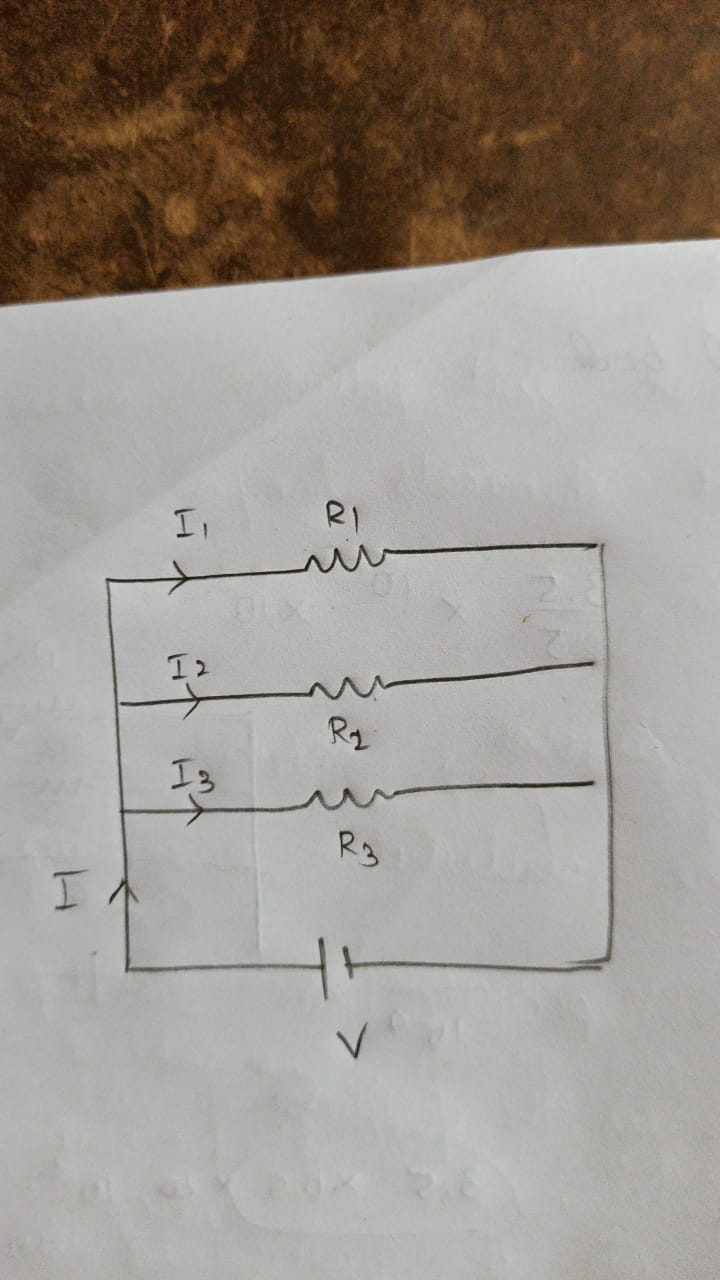 I1
R1
I2
R2
I3
R3
I
V